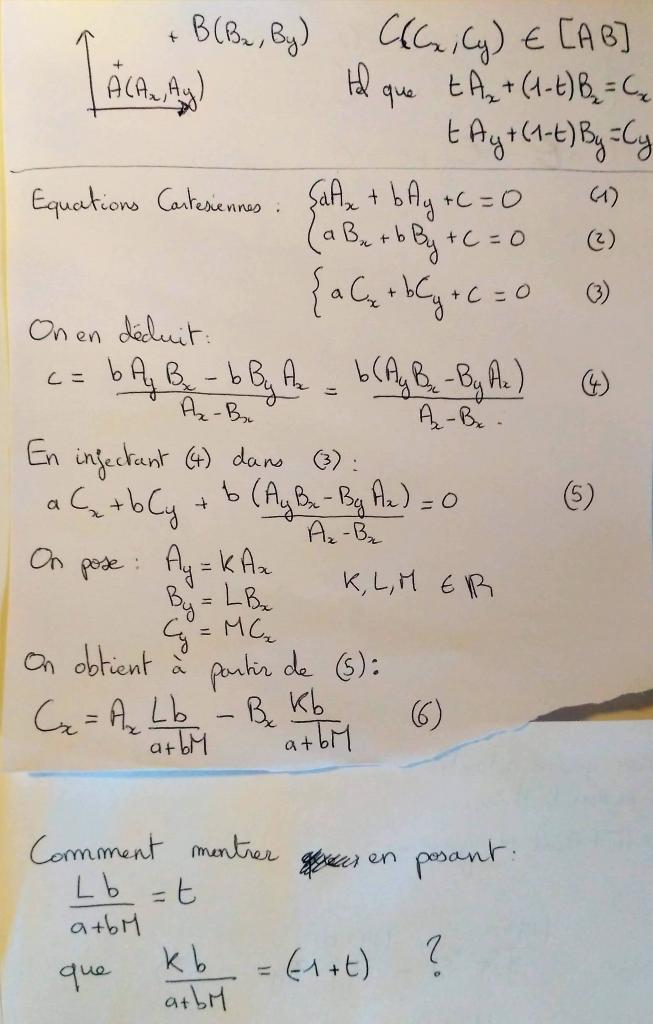 + B(Bx, By)   C(Cx, Cy) ∈ [AB]
+ A(Ax, Ay)   tel que   tAx + (1-t)Bx = Cx
tAy + (1-t)By = Cy
Equations Cartesiennes : { aAx + bAy + c = 0   (1)
aBx + bBy + c = 0   (2)
{ aCx + bCy + c = 0   (3)
On en déduit :
c = (b Ay Bx - b By Ax) / (Ax - Bx) = b(Ay Bx - By Ax) / (Ax - Bx) .   (4)
En injectant (4) dans (3) :
aCx + bCy + b (Ay Bx - By Ax) / (Ax - Bx) = 0   (5)
On pose : Ay = KAx
By = LBx   K, L, M ∈ ℝ
Cy = MCx
On obtient à partir de (5) :
Cx = Ax Lb / (a+bM) - Bx Kb / (a+bM)   (6)
Comment montrer en posant :
Lb / (a+bM) = t
que   Kb / (a+bM) = (-1+t)   ?